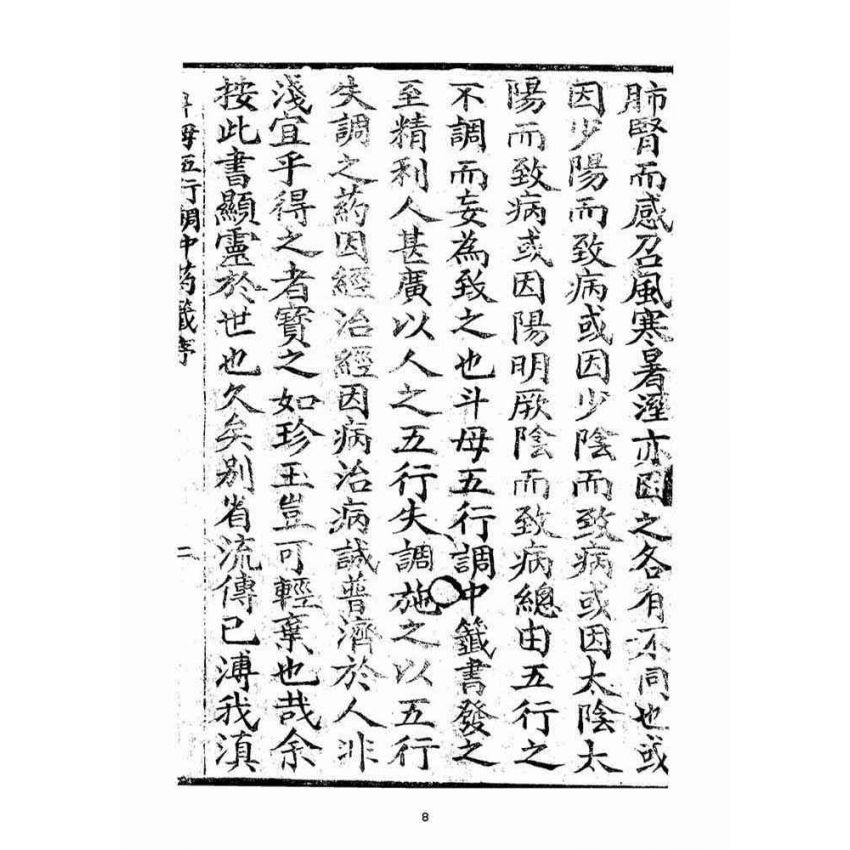 肺腎而感召風寒暑溼亦因之各有不同也或
因少陽而致病或因少陰而致病或因太陰太
陽而致病或因陽明厥陰而致病總由五行之
不調而妄為致之也斗母五行調中籤書發之
至精利人甚廣以人之五行失調施之以五行
失調之药因經治經因病治病誠普濟於人非
淺宜乎得之者寶之如珍玉豈可輕棄也哉余
按此書顯靈於世也久矣别省流傳已溥我滇
斗母五行調中药籤序
二
8